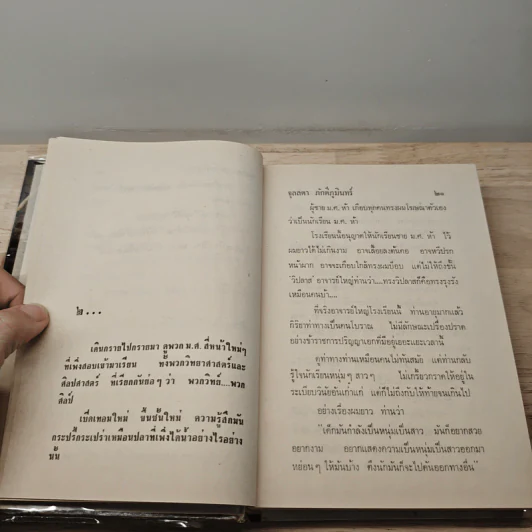 ๒...
เดินกรายไปกรายมา ดูพวก ม.ศ. สี่หน้าใหม่ๆ
ที่เพิ่งสอบเข้ามาเรียน ทั้งพวกวิทยาศาสตร์และ
ศิลปศาสตร์ ที่เรียกกันย่อๆ ว่า พวกวิทย์....พวก
ศิลป์
เปิดเทอมใหม่ ขึ้นชั้นใหม่ ความรู้สึกมัน
กระปรี้กระเปร่าเหมือนปลาที่เพิ่งได้น้ำอย่างไรอย่าง
นั้น
จุลลดา ภักดีภูมินทร์
๒๑
ผู้ชาย ม.ศ. ห้า เกือบทุกคนทรงผมโฆษณาตัวเอง
ว่าเป็นนักเรียน ม.ศ. ห้า
โรงเรียนนี้อนุญาตให้นักเรียนชาย ม.ศ. ห้า ไว้
ผมยาวได้ไม่เกินงาม อาจเลื้อยลงต้นคอ อาจหวีปรก
หน้ามาก อาจจะเกือบใกล้ทรงผมบ๊อบ แต่ไม่ให้ถึงขั้น
'วิปลาส' อาจารย์ใหญ่ท่านว่า....ทรงวิปลาสก็คือทรงรุงรัง
เหมือนคนบ้า....
ที่จริงอาจารย์ใหญ่โรงเรียนนี้ ท่านอายุมากแล้ว
กิริยาท่าทางเป็นคนโบราณ ไม่มีลักษณะเปรื่องปราด
อย่างข้าราชการปริญญาเอกที่มีอยู่เยอะแยะเวลานี้
ดูท่าทางท่านเหมือนคนไม่ทันสมัย แต่ท่านกลับ
รู้ใจนักเรียนหนุ่มๆ สาวๆ ไม่เกรี้ยวกราดให้อยู่ใน
ระเบียบวินัยอันเก่าแก่ แต่ก็ไม่ถึงกับให้ท้ายจนเกินไป
อย่างเรื่องผมยาว ท่านว่า
"เด็กมันกำลังเป็นหนุ่มเป็นสาว มันก็อยากสวย
อยากงาม อยากแสดงความเป็นหนุ่มเป็นสาวออกมา
หย่อนๆ ให้มันบ้าง ตึงนักมันก็จะไปดันออกทางอื่น"